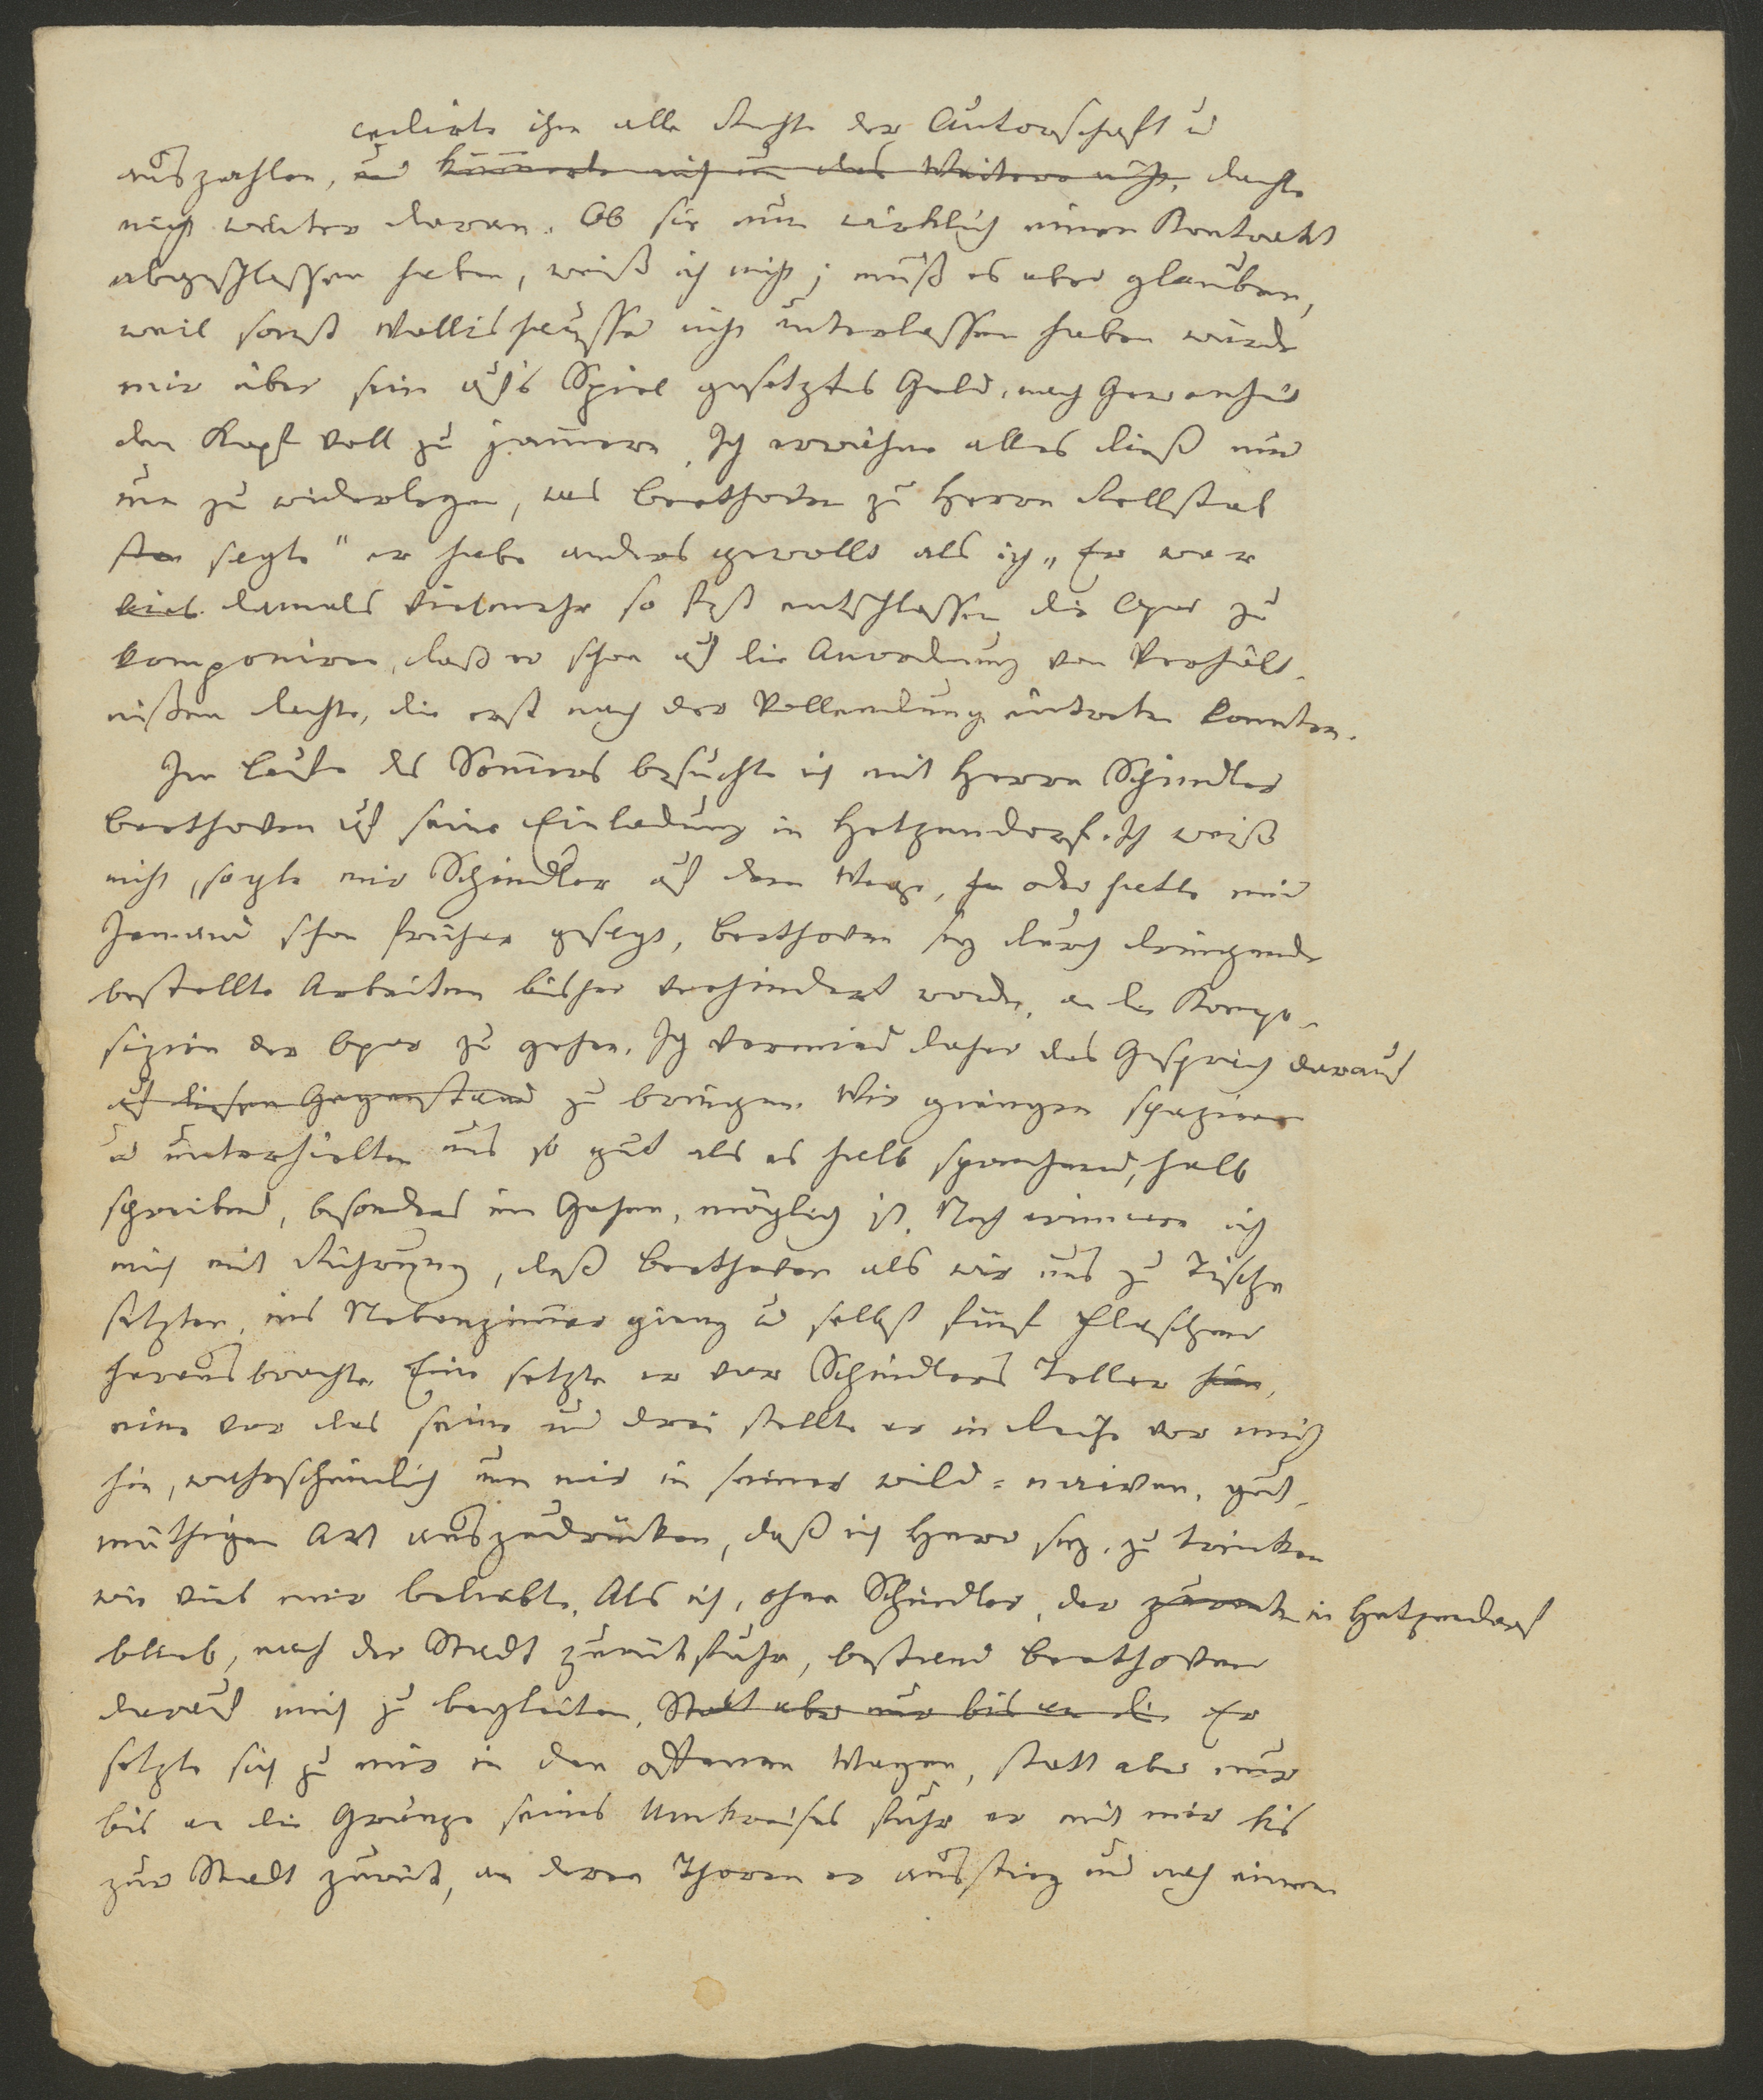 cedirte ihm alle Rechte der Autorschaft u
auszahlen, und kümmerte mich um das Weitere nicht, dachte
nicht weiter daran. Ob sie nun wirklich einen Kontrakt
abgeschlossen haben, weiß ich nicht; muß es aber glauben,
weil sonst Wallishausser nicht unterlassen haben würde
mir über sein auf's Spiel gesetztes Geld, nach Gewohnheit
den Kopf voll zu jammern. Ich erwähne alles dieß nur
um zu widerlegen, was Beethoven zu Herrn Rellstab
sagte "er habe anderes gewollt als ich" Er war
damals vielmehr so fest entschlossen die Oper zu
komponiren, daß er schon auf die Anordnung von Verhält-
nißen dachte, die erst nach der Vollendung eintreten konnten.
Im Laufe des Sommers besuchte ich mit Herrn Schindler
Beethoven auf seine Einladung in Hetzendorf. Ich weiß
nicht, sagte mir Schindler auf dem Wege, oder hatte mir
Jemand schon früher gesagt, Beethoven sey durch dringende
bestellte Arbeiten bisher verhindert worden, an die Kompo-
sizion der Oper zu gehen. Ich vermied daher das Gespräch darauf
auf diesen Gegenstand zu bringen. Wir giengen spaziren
u unterhielten uns so gut als es halb sprechend, halb
schreibend, besonders im Gehen, möglich ist. Noch erinnere ich
mich mit Rührung, daß Beethoven als wir uns zu Tische
setzten, ins Nebenzimmer gieng u selbst fünf Flaschen
herausbrachte. Eine setzte er vor Schindlers Teller hin,
eine vor das seine und drei stellte er in Reihe vor mich
hin, wahrscheinlich um mir in seiner wild=naiven, gut-
müthigen Art auszudrücken, daß ich Herr sey, zu trinken
wie viel mir beliebte. Als ich, ohne Schindler, der in Hetzendorf
blieb, nach der Stadt zurückfuhr, bestand Beethoven
darauf mich zu begleiten. Statt aber nur bis an die Er
setzte sich zu mir in den offenen Wagen, statt aber nur
bis an die Gränze seines Umkreises fuhr er mit mir bis
zur Stadt zurück, an deren Thoren er ausstieg und nach einem